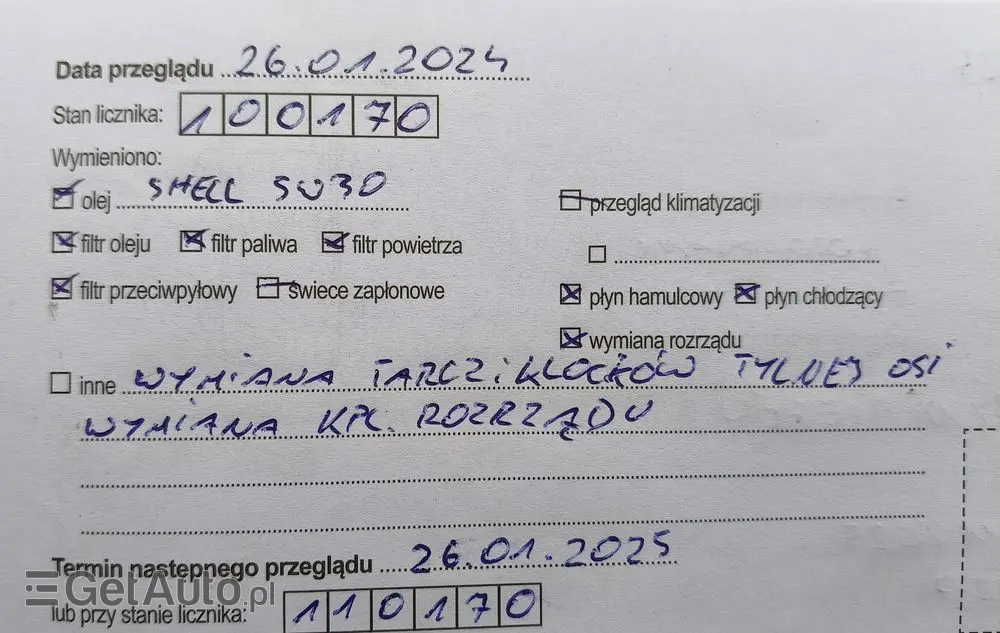 Data przeglądu 26.01.2024
Stan licznika: 100170
Wymieniono:
olej SHELL 5W30
przegląd klimatyzacji
filtr oleju filtr paliwa filtr powietrza
filtr przeciwpyłowy świece zapłonowe
płyn hamulcowy płyn chłodzący
wymiana rozrządu
inne WYMIANA TARCZ i KLOCKÓW TYLNEJ OSI
WYMIANA KPL. ROZRZĄDU
Termin następnego przeglądu 26.01.2025
lub przy stanie licznika: 110170
GetAuto.pl